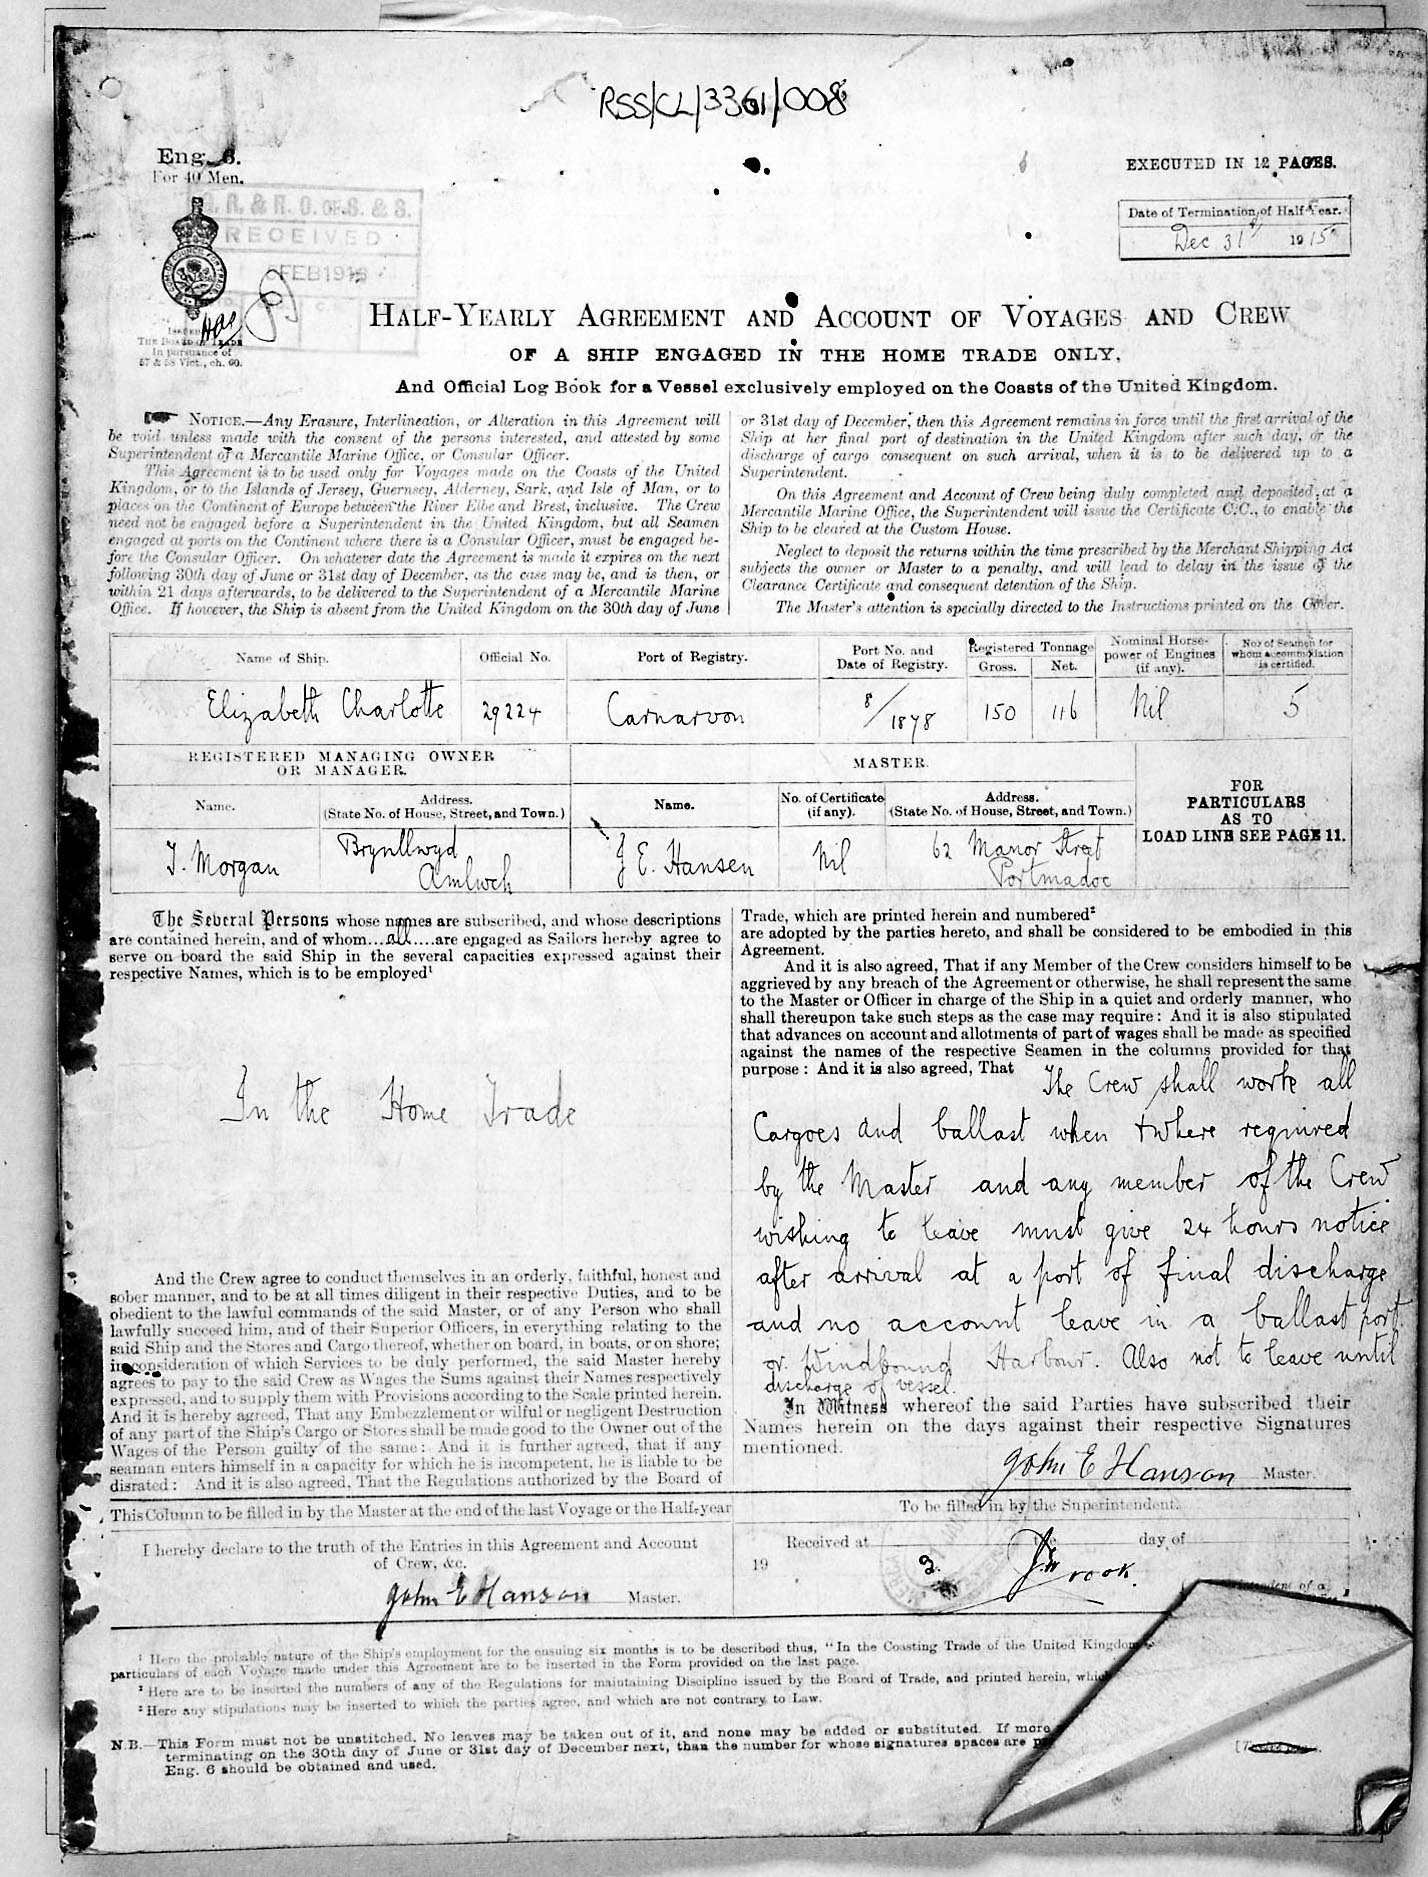 RSS/CL/3361/008
Eng. 6.
For 40 Men.
EXECUTED IN 12 PAGES.
R. & R. O. OF S. & S.
RECEIVED
FEB 1916
Date of Termination of Half-Year.
Dec 31st 1915
ISSUED
THE BOARD OF TRADE
In pursuance of
57 & 58 Vict., ch. 60.
HALF-YEARLY AGREEMENT AND ACCOUNT OF VOYAGES AND CREW
OF A SHIP ENGAGED IN THE HOME TRADE ONLY,
And Official Log Book for a Vessel exclusively employed on the Coasts of the United Kingdom.
NOTICE.—Any Erasure, Interlineation, or Alteration in this Agreement will
be void unless made with the consent of the persons interested, and attested by some
Superintendent of a Mercantile Marine Office, or Consular Officer.
This Agreement is to be used only for Voyages made on the Coasts of the United
Kingdom, or to the Islands of Jersey, Guernsey, Alderney, Sark, and Isle of Man, or to
places on the Continent of Europe between the River Elbe and Brest, inclusive. The Crew
need not be engaged before a Superintendent in the United Kingdom, but all Seamen
engaged at ports on the Continent where there is a Consular Officer, must be engaged be-
fore the Consular Officer. On whatever date the Agreement is made it expires on the next
following 30th day of June or 31st day of December, as the case may be, and is then, or
within 21 days afterwards, to be delivered to the Superintendent of a Mercantile Marine
Office. If however, the Ship is absent from the United Kingdom on the 30th day of June
or 31st day of December, then this Agreement remains in force until the first arrival of the
Ship at her final port of destination in the United Kingdom after such day, or the
discharge of cargo consequent on such arrival, when it is to be delivered up to a
Superintendent.
On this Agreement and Account of Crew being duly completed and deposited at a
Mercantile Marine Office, the Superintendent will issue the Certificate C.C., to enable the
Ship to be cleared at the Custom House.
Neglect to deposit the returns within the time prescribed by the Merchant Shipping Act
subjects the owner or Master to a penalty, and will lead to delay in the issue of the
Clearance Certificate and consequent detention of the Ship.
The Master's attention is specially directed to the Instructions printed on the Cover.
Name of Ship. Official No. Port of Registry. Port No. and Date of Registry. Registered Tonnage Gross. Net. Nominal Horse-power of Engines (if any). No. of Seamen for whom accommodation is certified.
Elizabeth Charlotte 29224 Carnarvon 8/1878 150 116 Nil 5
REGISTERED MANAGING OWNER
OR MANAGER.
MASTER.
Name. Address. (State No. of House, Street, and Town.) Name. No. of Certificate (if any). Address. (State No. of House, Street, and Town.)
FOR
PARTICULARS
AS TO
LOAD LINE SEE PAGE 11.
T. Morgan Brynllwyd Amlwch J E. Hansen Nil 62 Manor Street Portmadoc
The Several Persons whose names are subscribed, and whose descriptions
are contained herein, and of whom....all....are engaged as Sailors hereby agree to
serve on board the said Ship in the several capacities expressed against their
respective Names, which is to be employed¹
In the Home Trade
And the Crew agree to conduct themselves in an orderly, faithful, honest and
sober manner, and to be at all times diligent in their respective Duties, and to be
obedient to the lawful commands of the said Master, or of any Person who shall
lawfully succeed him, and of their Superior Officers, in everything relating to the
said Ship and the Stores and Cargo thereof, whether on board, in boats, or on shore;
in consideration of which Services to be duly performed, the said Master hereby
agrees to pay to the said Crew as Wages the Sums against their Names respectively
expressed, and to supply them with Provisions according to the Scale printed herein.
And it is hereby agreed, That any Embezzlement or wilful or negligent Destruction
of any part of the Ship's Cargo or Stores shall be made good to the Owner out of the
Wages of the Person guilty of the same: And it is further agreed, that if any
seaman enters himself in a capacity for which he is incompetent, he is liable to be
disrated: And it is also agreed, That the Regulations authorized by the Board of
Trade, which are printed herein and numbered²
are adopted by the parties hereto, and shall be considered to be embodied in this
Agreement.
And it is also agreed, That if any Member of the Crew considers himself to be
aggrieved by any breach of the Agreement or otherwise, he shall represent the same
to the Master or Officer in charge of the Ship in a quiet and orderly manner, who
shall thereupon take such steps as the case may require: And it is also stipulated
that advances on account and allotments of part of wages shall be made as specified
against the names of the respective Seamen in the columns provided for that
purpose: And it is also agreed, That The Crew shall work all
Cargoes and ballast when & where required
by the Master and any member of the Crew
wishing to leave must give 24 hours notice
after arrival at a port of final discharge
and no account leave in a ballast port
or Windbound Harbour. Also not to leave until
discharge of vessel.
In Witness whereof the said Parties have subscribed their
Names herein on the days against their respective Signatures
mentioned.
John E Hanson Master.
This Column to be filled in by the Master at the end of the last Voyage or the Half-year
I hereby declare to the truth of the Entries in this Agreement and Account
of Crew, &c.
John E Hanson Master.
To be filled in by the Superintendent.
Received at the day of
19
¹ Here the probable nature of the Ship's employment for the ensuing six months is to be described thus, "In the Coasting Trade of the United Kingdom
particulars of each Voyage made under this Agreement are to be inserted in the Form provided on the last page.
² Here are to be inserted the numbers of any of the Regulations for maintaining Discipline issued by the Board of Trade, and printed herein, which
³ Here any stipulations may be inserted to which the parties agree, and which are not contrary to Law.
N.B.—This Form must not be unstitched. No leaves may be taken out of it, and none may be added or substituted. If more
terminating on the 30th day of June or 31st day of December next, than the number for whose signatures spaces are
Eng. 6 should be obtained and used.